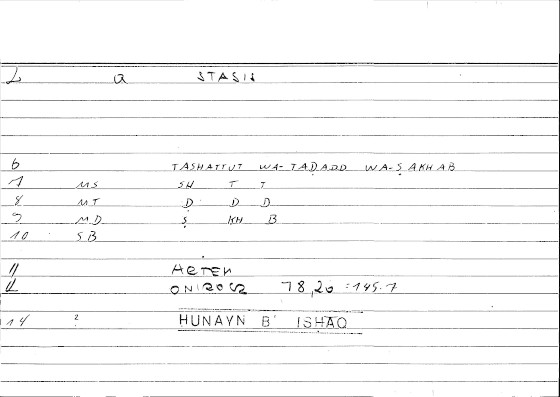 L a STASIS
6 TASHATTUT WA-TAḌADD WA-ṢAKHAB
7 MS SH T T
8 MT Ḍ D D
9 MD Ṣ KH B
10 SB
11 ARTEM
12 ONIROCR 78,20 :145.7
14 ? HUNAYN B' ISHAQ